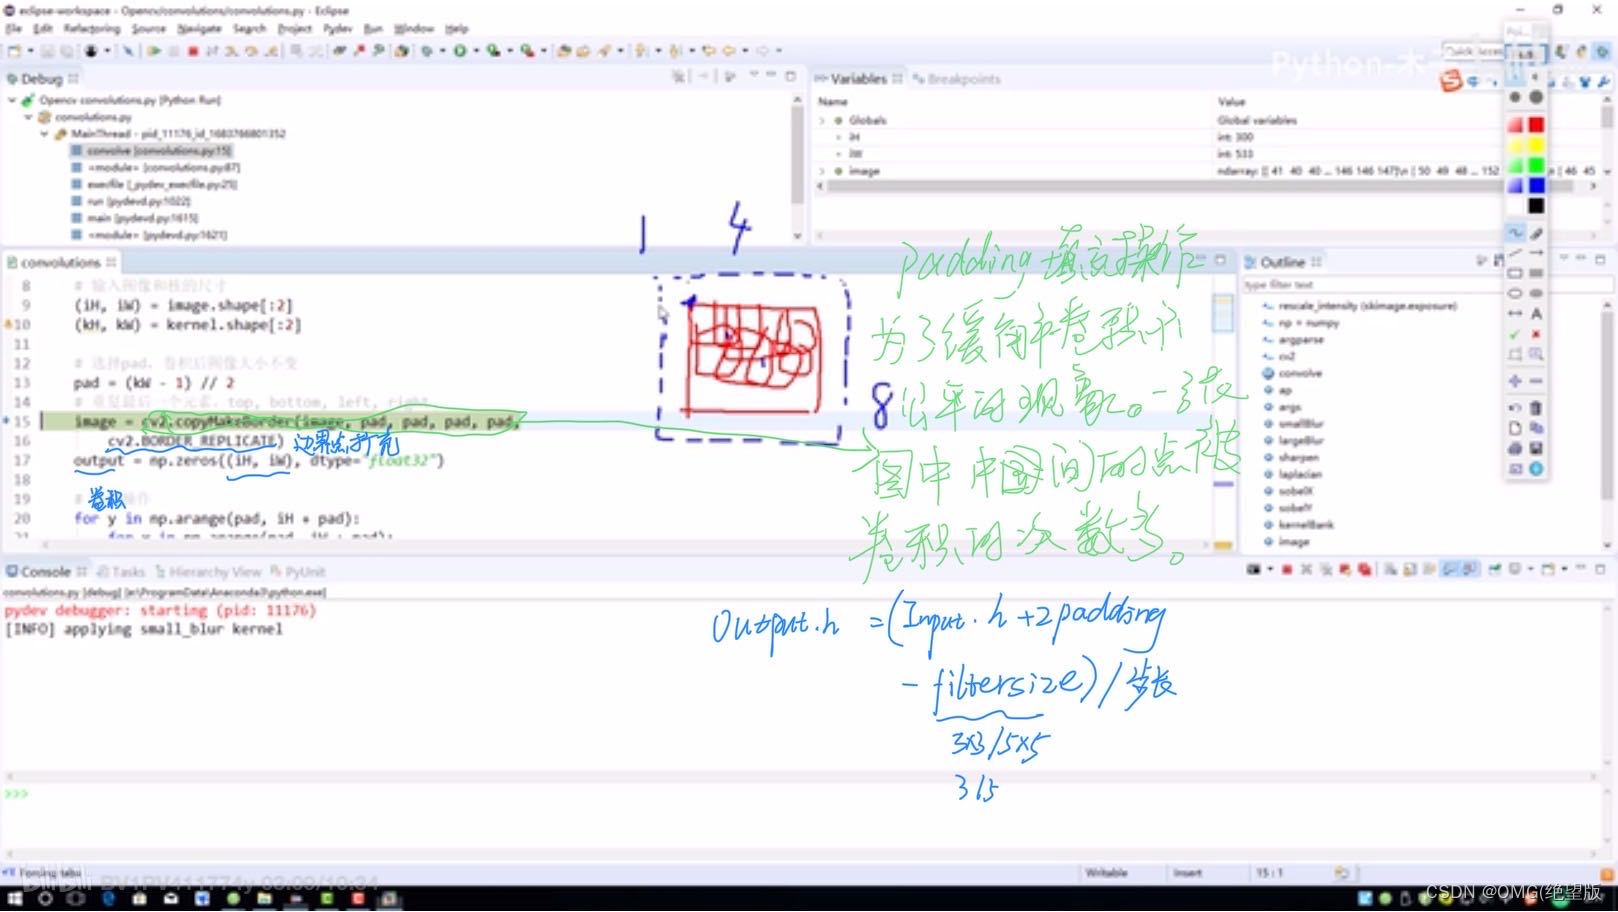 eclipse-workspace - Opencv/convolutions/convolutions.py - Eclipse
File Edit Refactoring Source Navigate Search Project Pydev Run Window Help
Python-木
Debug
Opencv convolutions.py [Python Run]
convolutions.py
MainThread - pid_11176_id_1683766801352
convolve [convolutions.py:15]
<module> [convolutions.py:87]
execfile [_pydev_execfile.py:25]
run [pydevd.py:1022]
main [pydevd.py:1615]
<module> [pydevd.py:1621]
Variables Breakpoints
Name Value
Globals Global variables
iH int: 300
iW int: 533
image ndarray: [[ 41 40 40 ... 146 146 147]\n [ 50 49 48 ... 152
1 4
8
convolutions
8 # 输入图像和核的尺寸
9 (iH, iW) = image.shape[:2]
10 (kH, kW) = kernel.shape[:2]
11
12 # 选择pad，卷积后图像大小不变
13 pad = (kW - 1) // 2
14 # 重复最后一个元素，top, bottom, left, right
15 image = cv2.copyMakeBorder(image, pad, pad, pad, pad,
16 cv2.BORDER_REPLICATE) 边界点扩充
17 output = np.zeros((iH, iW), dtype="float32")
18
卷积
19 # 操作
20 for y in np.arange(pad, iH + pad):
padding 填充操作
为了缓解卷积不
公平的现象。一张
图中 中间的点被
卷积的次数多。
Output.h = (Input.h +2padding
- filtersize) / 步长
3×3/5×5
3/5
Outline
type filter text
rescale_intensity (skimage.exposure)
np = numpy
argparse
cv2
convolve
ap
args
smallBlur
largeBlur
sharpen
laplacian
sobelX
sobelY
kernelBank
image
Console Tasks Hierarchy View PyUnit
convolutions.py [debug] [e:\ProgramData\Anaconda3\python.exe]
pydev debugger: starting (pid: 11176)
[INFO] applying small_blur kernel
>>>
Forcing tabs
Writable Insert 15 : 1
CSDN @OMG(绝望版